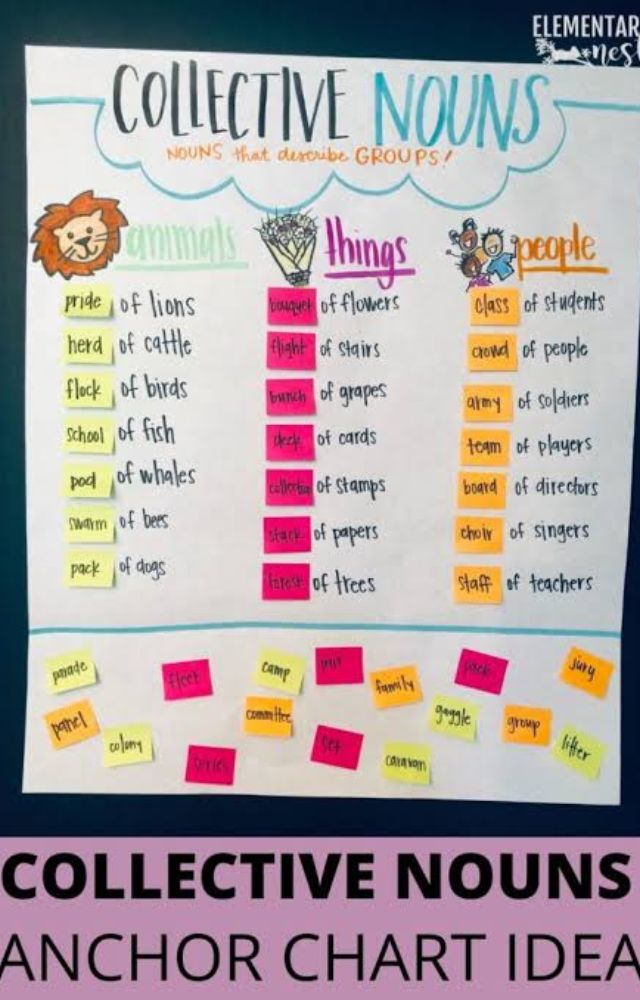 ELEMENTAR
nest
COLLECTIVE NOUNS
NOUNS that describe GROUPS!
animals
pride of lions
herd of cattle
flock of birds
school of fish
pod of whales
swarm of bees
pack of dogs
things
bouquet of flowers
flight of stairs
bunch of grapes
deck of cards
collection of stamps
stack of papers
forest of trees
people
class of students
crowd of people
army of soldiers
team of players
board of directors
choir of singers
staff of teachers
parade
fleet
camp
family
jury
panel
committee
gaggle
group
colony
series
set
caravan
litter
COLLECTIVE NOUNS
ANCHOR CHART IDEA